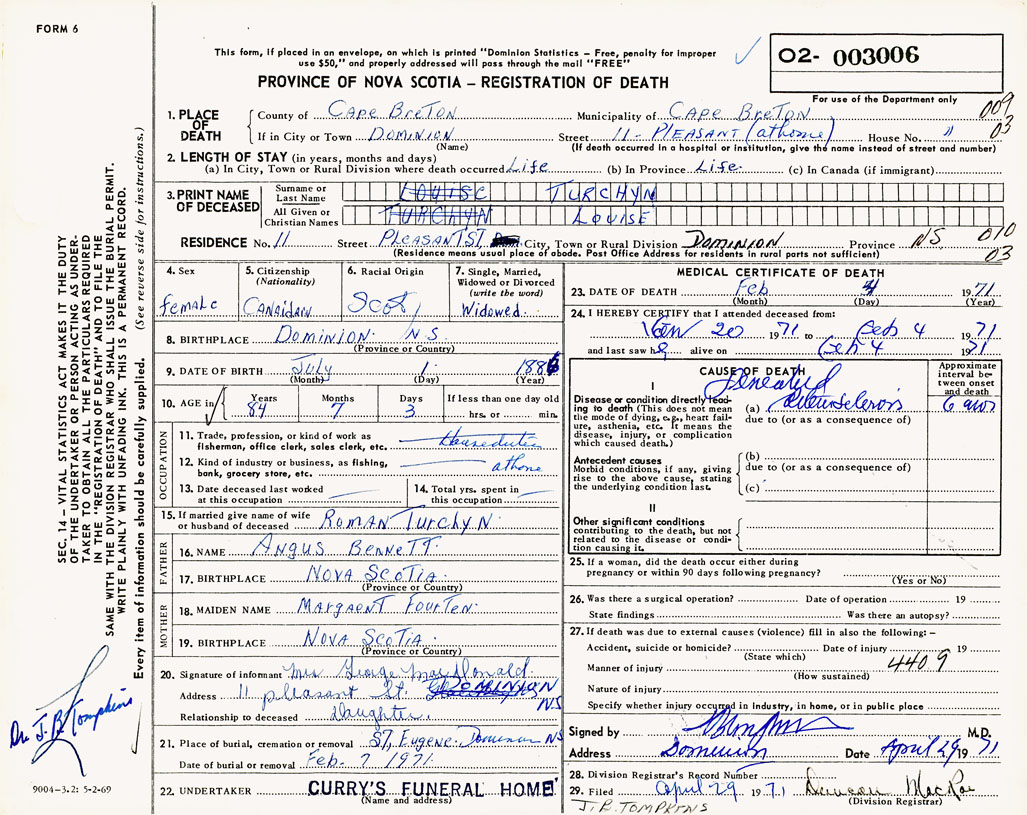 FORM 6
This form, if placed in an envelope, on which is printed "Dominion Statistics – Free, penalty for improper
use $50," and properly addressed will pass through the mail "FREE"
PROVINCE OF NOVA SCOTIA – REGISTRATION OF DEATH
02- 003006
For use of the Department only
009
03
1. PLACE OF DEATH
County of Cape Breton Municipality of Cape Breton
If in City or Town Dominion Street 11- Pleasant (athome) House No. "
(Name) (If death occurred in a hospital or institution, give the name instead of street and number)
2. LENGTH OF STAY (in years, months and days)
(a) In City, Town or Rural Division where death occurred Life (b) In Province Life (c) In Canada (if immigrant)
3. PRINT NAME OF DECEASED
Surname or Last Name LOUISE TURCHYN
All Given or Christian Names TURCHYN LOUISE
RESIDENCE No. 11 Street Pleasant St, City, Town or Rural Division Dominion Province NS 010
03
(Residence means usual place of abode. Post Office Address for residents in rural parts not sufficient)
4. Sex
female
5. Citizenship (Nationality)
Canaidain
6. Racial Origin
Scot
7. Single, Married, Widowed or Divorced (write the word)
Widowed.
8. BIRTHPLACE Dominion. N.S
(Province or Country)
9. DATE OF BIRTH July 1. 1886
(Month) (Day) (Year)
10. AGE in
Years 84 Months 7 Days 3
If less than one day old
hrs. or min.
OCCUPATION
11. Trade, profession, or kind of work as fisherman, office clerk, sales clerk, etc. Houseduties
12. Kind of industry or business, as fishing, bank, grocery store, etc. athome
13. Date deceased last worked at this occupation
14. Total yrs. spent in this occupation
15. If married give name of wife or husband of deceased Roman Turchyn.
FATHER
16. NAME Angus Bennett.
17. BIRTHPLACE Nova Scotia.
(Province or Country)
MOTHER
18. MAIDEN NAME Margaent Fourten.
19. BIRTHPLACE Nova Scotia.
(Province or Country)
20. Signature of informant Mrs George MacDonald
Address 11 pleasant St. Dominion
NS
Relationship to deceased daughter.
21. Place of burial, cremation or removal St, Eugene. Dominion NS
Date of burial or removal Feb. 7 1971
22. UNDERTAKER CURRY'S FUNERAL HOME
(Name and address)
MEDICAL CERTIFICATE OF DEATH
23. DATE OF DEATH Feb 4 1971
(Month) (Day) (Year)
24. I HEREBY CERTIFY that I attended deceased from:
Jan 20 1971 to Feb 4 1971
and last saw h alive on Feb 4 1971
CAUSE OF DEATH
Approximate interval between onset and death
I
Disease or condition directly leading to death (This does not mean the mode of dying, e.g., heart failure, asthenia, etc. It means the disease, injury, or complication which caused death.)
(a)
due to (or as a consequence of)
Antecedent causes
Morbid conditions, if any, giving rise to the above cause, stating the underlying condition last.
(b)
due to (or as a consequence of)
(c)
II
Other significant conditions
contributing to the death, but not related to the disease or condition causing it.
25. If a woman, did the death occur either during
pregnancy or within 90 days following pregnancy?
(Yes or No)
26. Was there a surgical operation? Date of operation 19
State findings Was there an autopsy?
27. If death was due to external causes (violence) fill in also the following: –
Accident, suicide or homicide? Date of injury 19
(State which)
4409
Manner of injury
(How sustained)
Nature of injury
Specify whether injury occurred in industry, in home, or in public place
Signed by M.D.
Address Dominion Date April 29 1971
28. Division Registrar's Record Number
29. Filed April 29 1971 Duncan MacRae
(Division Registrar)
J.B. TOMPKINS
SEC. 14 – VITAL STATISTICS ACT MAKES IT THE DUTY
OF THE UNDERTAKER OR PERSON ACTING AS UNDER-
TAKER TO OBTAIN ALL THE PARTICULARS REQUIRED
IN THE "REGISTRATION OF DEATH" AND TO FILE THE
SAME WITH THE DIVISION REGISTRAR WHO SHALL ISSUE THE BURIAL PERMIT.
WRITE PLAINLY WITH UNFADING INK. THIS IS A PERMANENT RECORD.
Every item of information should be carefully supplied. (See reverse side for instructions.)
Dr. J. B. Tompkins
9004–3.2: 5-2-69